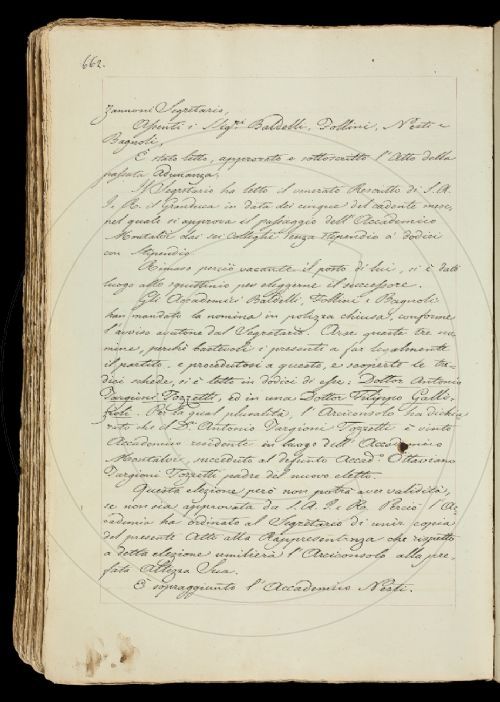 662.
Zannoni Segretario,
Assenti i Sigri Baldelli, Follini, Nesti e
Bagnoli,
È stato letto, approvato e sottoscritto l'Atto della
passata Adunanza.
Il Segretario ha letto il venerato Rescritto di S. A.
I. e R. il Granduca in data dei cinque del cadente mese,
nel quale si approva il passaggio dell'Accademico
Montalvi dai sei colleghi senza stipendio a' dodici
con stipendio
Rimaso perciò vacante il posto di lui, si è dato
luogo allo squittinio per eleggerne il successore.
Gli Accademici Baldelli, Follini e Bagnoli
han mandato la nomina in polizza chiusa, conforme
l'avviso avutone dal Segretario. Arse queste tre no-
mine, perchè bastevoli i presenti a far legalmente
il partito, e procedutosi a questo, e scoperte le tre-
dici schede, si è letto in dodici di esse: Dottor Antonio
Targioni Tozzetti, ed in una Dottor Filippo Galli-
zioli. Per la qual pluralità, l'Arciconsolo ha dichia-
rato che il Dr. Antonio Targioni Tozzetti è vinto
Accademico residente in luogo dell'Accademico
Montalvi, succeduto al defunto Accad.o Ottaviano
Targioni Tozzetti padre del nuovo eletto.
Questa elezione però non potrà aver validità,
se non sia approvata da S. A. I. e R. Perciò l'Ac-
cademia ha ordinato al Segretario di unir copia
del presente Atto alla Rappresentanza che rispetto
a detta elezione umilierà l'Arciconsolo alla pre-
fata Altezza Sua.
È sopraggiunto l'Accademico Nesti.